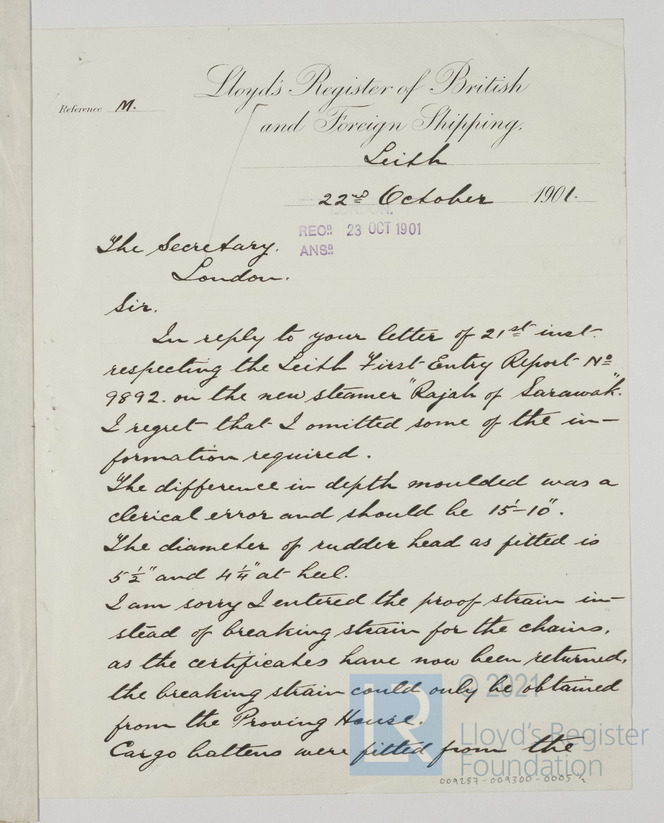 Lloyd's Register of British
Reference M.
and Foreign Shipping.
Leith
22nd October 1901.
RECD 23 OCT 1901
ANSD
The Secretary.
London.
Sir.
In reply to your letter of 21st inst.
respecting the Leith First Entry Report No
9892. on the new steamer "Rajah of Sarawak".
I regret that I omitted some of the in-
formation required.
The difference in depth moulded was a
clerical error and should be 15'-10".
The diameter of rudder head as fitted is
5½" and 4¼" at heel.
I am sorry I entered the proof strain in-
stead of breaking strain for the chains,
as the certificates have now been returned,
the breaking strain could only be obtained
from the Proving House.
Cargo battens were fitted from the
© 2021
LR Lloyd's Register
Foundation
009287-009300-0005 ½